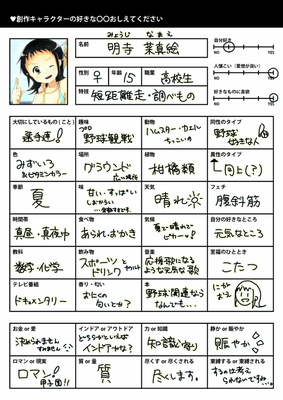 ♥創作キャラクターの好きな○○おしえてください
みょうじ なまえ
名前 明寺 菜真絵
性別 ♀ 年齢 15 職業 高校生
特技 短距離走・調べもの
自分好き
NO YES
人懐こい(愛想が良い)
NO YES
好きなものに貪欲
NO YES
大切にしているもの(こと)
選手達!
趣味
プロ野球観戦
動物
ハムスター・カエル
ちっこいの
同性のタイプ
野球好きな人!
色
みずいろ
&ビタミンカラー
場所
グラウンド
植物
柑橘類
異性のタイプ
↑同上(?)
季節
夏
味
甘い・すっぱい
しおからい
天気
晴れ
フェチ
腹斜筋
時間帯
真昼・真夜中
食べ物
あられ・おかき
気候
夏で晴れで
ピカーッ!
自分の好きなところ
元気なところ
教科
数学・化学
飲み物
スポーツ
ドリンク
音楽
応援歌になる
ような元気な歌
至福のひととき
こたつ
テレビ番組
ドキュメンタリー
香り・匂い
おにくの
匂いとか?
本
野球関連なら
なんでも…
にがおえ
お金 or 愛
決められません
すみません
インドア or アウトドア
どちらかといえば
インドアかな?
力 or 知識
知識寄り
静か or 賑やか
賑やか
ロマン or 現実
ロマン!
甲子園!!
質 or 量
質
尽くす or 尽くされる
尽くします。
束縛する or 束縛される
するのは考え
られないですね…